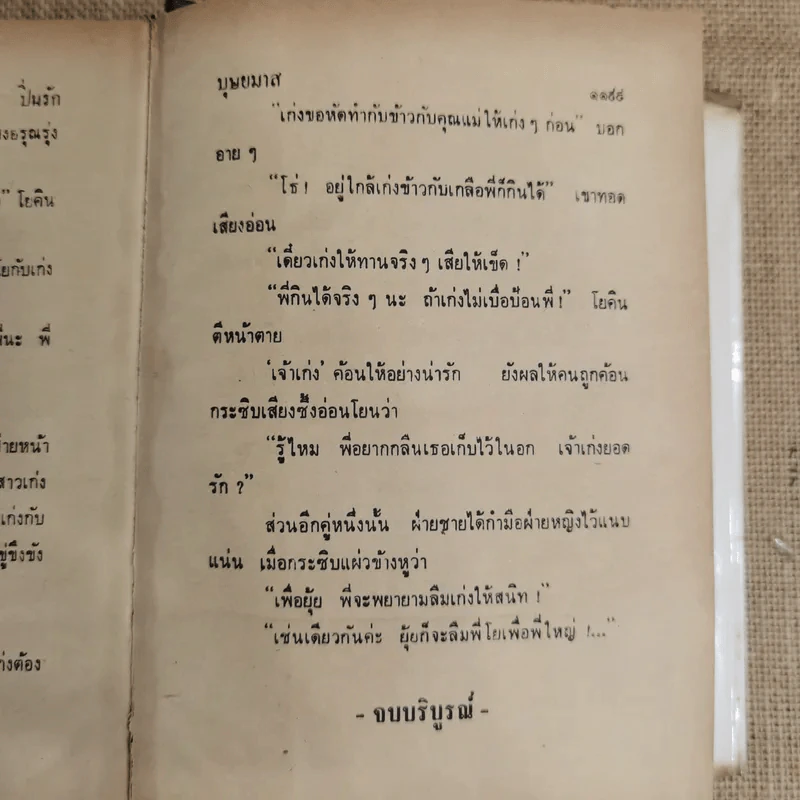 ปิ่นรัก
โยคิน
ยกับเก่ง
นะ พี่
ายหน้า
สาวเก่ง
เก่งกับ
ขู่ขึงขัง
ก่งต้อง
บุษยมาส
๑๑๙๙
“เก่งขอหัดทำกับข้าวกับคุณแม่ให้เก่ง ๆ ก่อน” บอก
อาย ๆ
“โธ่ ! อยู่ใกล้เก่งข้าวกับเกลือพี่ก็กินได้” เขาทอด
เสียงอ่อน
“เดี๋ยวเก่งให้ทานจริง ๆ เสียให้เข็ด !”
“พี่กินได้จริง ๆ นะ ถ้าเก่งไม่เบื่อป้อนพี่ !” โยคิน
ตีหน้าตาย
‘เจ้าเก่ง’ ค้อนให้อย่างน่ารัก ยังผลให้คนถูกค้อน
กระซิบเสียงซึ้งอ่อนโยนว่า
“รู้ไหม พี่อยากกลืนเธอเก็บไว้ในอก เจ้าเก่งยอด
รัก ?”
ส่วนอีกคู่หนึ่งนั้น ฝ่ายชายได้กำมือฝ่ายหญิงไว้แนบ
แน่น เมื่อกระซิบแผ่วข้างหูว่า
“เพื่อยุ้ย พี่จะพยายามลืมเก่งให้สนิท !”
“เช่นเดียวกันค่ะ ยุ้ยก็จะลืมพี่โยเพื่อพี่ใหญ่ !...”
- จบบริบูรณ์ -